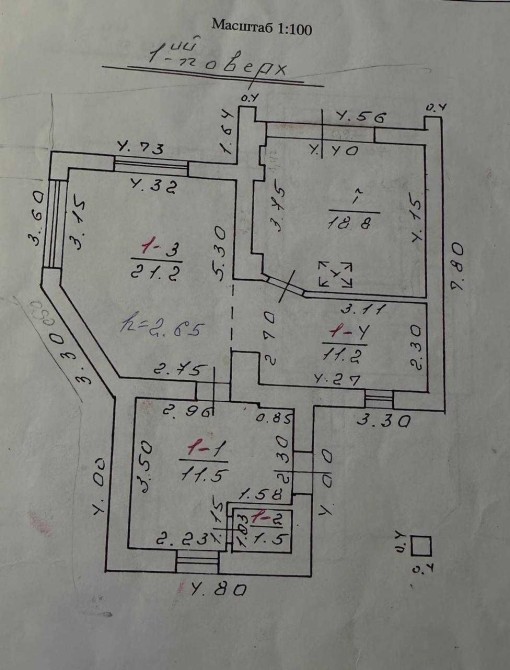 Масштаб 1:100
1-ий поверх
0.4
0.4
4.56
1.64
4.40
4.73
4.32
3.60
3.15
3.75
18.8
4.15
1-3
21.2
5.30
7.80
h=2.65
3.11
3.30
2.70
1-4
11.2
2.30
2.75
4.27
2.96
0.85
3.30
1-1
11.5
3.50
2.30
4.00
4.00
1.58
1.15
1.03
1-2
1.5
2.23
4.80
0.4
0.4